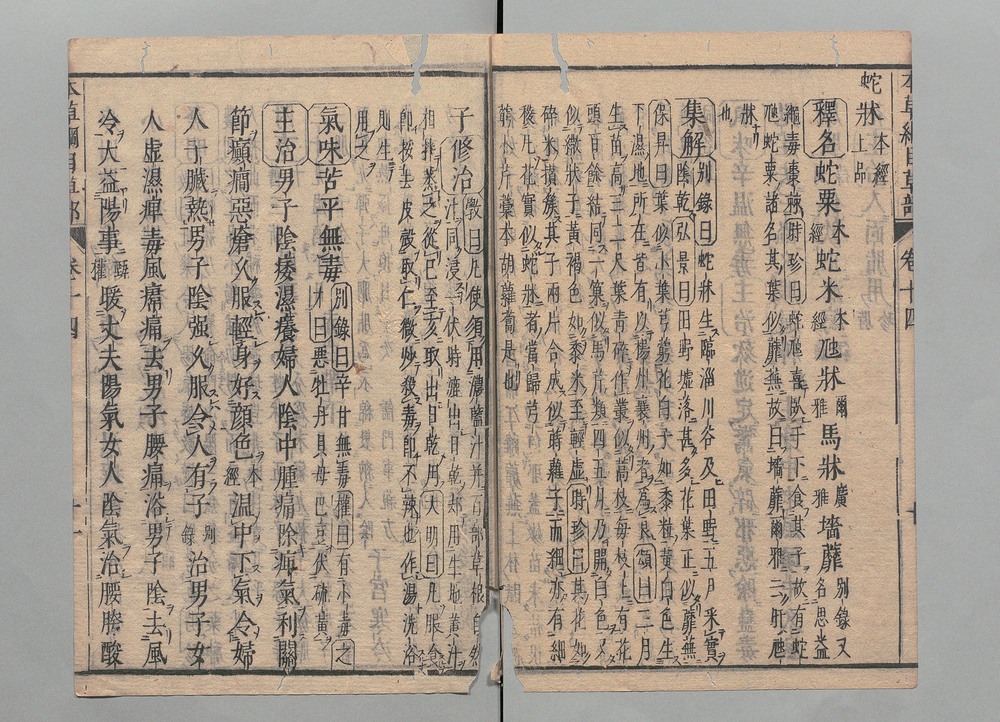 本草綱目草部 卷十四
蛇牀本經上品
釋名蛇粟本經蛇米本經虺牀爾雅馬牀廣雅墻蘼別錄又名思益
繩毒棗蕀時珍曰蛇虺喜臥于下食其子故有蛇
虺蛇粟諸名其葉似蘼蕪故曰墻蘼爾雅云盱虺
牀
也
集解別錄曰蛇牀生臨淄川谷及田野五月采實
陰乾弘景曰田野墟洛甚多花葉正似蘼蕪
保昇曰葉似小葉芎藭花白子如黍粒黃白色生
下濕地所在皆有以揚州襄州者爲良頌曰三月
生苗高三二尺葉青碎作叢似蒿枝每枝上有花
頭百餘結同一窠似馬芹類四五月乃開白色又
似繖狀子黃褐色如黍米至輕虛時珍曰其花如
碎米攢簇其子兩片合成似蒔蘿子而細亦有細
稜凡花實似蛇牀者當歸芎
藁本胡蘿蔔是也
子修治斅曰凡使須用濃藍汁并百部草根自然
汁同浸一伏時漉出日乾却用生地黃汁
相拌蒸之從巳至亥取出日乾用大明曰凡服食
即挼去皮殼取仁微炒殺毒即不辣也作湯洗浴
則生
用之
氣味苦平無毒別錄曰辛甘無毒權曰有小毒之
才曰惡牡丹貝母巴豆伏硫黃
主治男子陰痿濕癢婦人陰中腫痛除痺氣利關
節癲癇惡瘡久服輕身好顔色本經溫中下氣令婦
人子臟熱男子陰强久服令人有子別錄治男子女
人虛濕痺毒風㿏痛去男子腰痛浴男子陰去風
冷大益陽事甄權暖丈夫陽氣女人陰氣治腰胯酸
本草綱目草部 卷十四